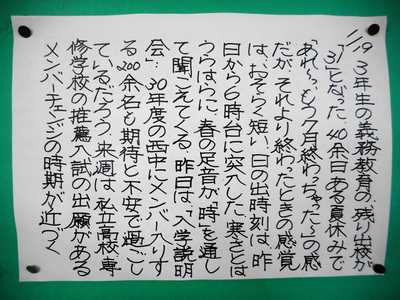 1/19 3年生の義務教育の残り出校が
「31」となった。40余日ある夏休みで
「あれ〜っ、もう7月終わっちゃった〜」の感
だが、それより終わったときの感覚
は、おそらく短い。日の出時刻は、昨
日から6時台に突入した。寒さとは
うらはらに、春の足音が「時」を通し
て聞こえてくる。昨日は、「入学説明
会」：30年度の西中にメンバー入りす
る200余名も期待と不安で過ごし
ているだろう。来週は、私立高校・専
修学校の推薦入試の出願がある
メンバーチェンジの時期が近づく